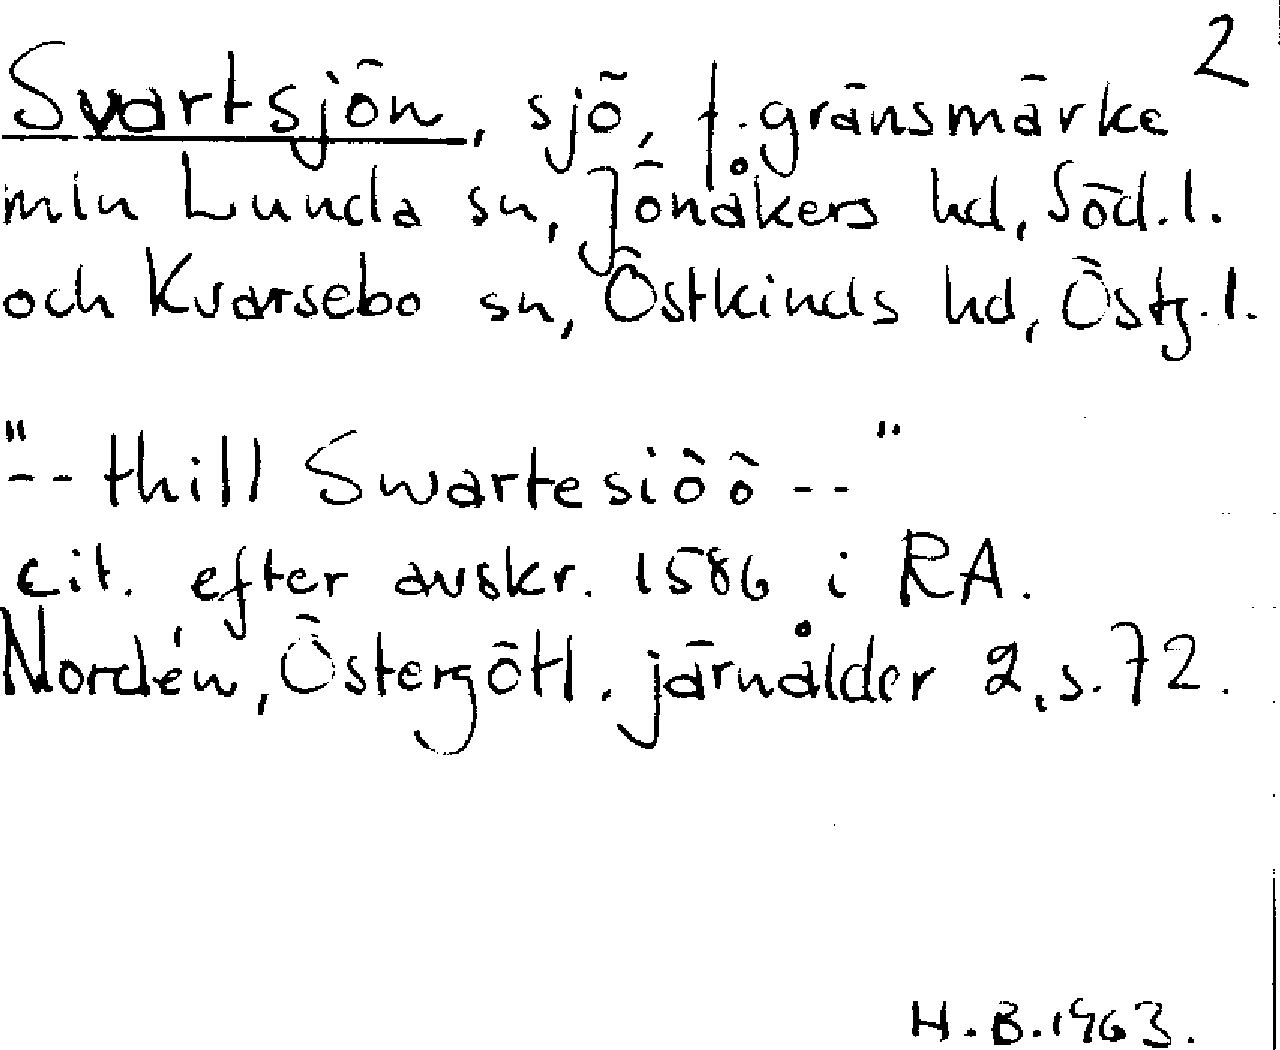 2
Svartsjön, sjö, f. gränsmärke
mln Lunda sn, Jönåkers hd, Söd.l.
och Kvarsebo sn, Östkinds hd, Östg.l.
"-- thill Swartesiöö --"
cit. efter avskr. 1586 i RA.
Nordén, Östergötl. järnålder 2, s. 72.
H.B.1963.